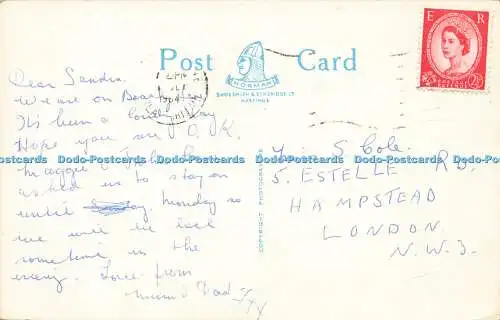 Post Card
NORMAN
SHOESMITH & ETHERIDGE LTD
HASTINGS
E R
POSTAGE REVENUE
2½D
1964
COPYRIGHT PHOTOGRAPH
Dear Sandra,
We are on
It's been a lovely day
Hope you are O.K.
Maggie &
asked us to stay on
until Monday so
we will be back
sometime in the
evening. Love from
Mum & Dad
S Cole.
5. ESTELLE RD.
HAMPSTEAD
LONDON.
N.W.3.
Dodo-Postcards Dodo-Postcards Dodo-Postcards Dodo-Postcards Dodo-Postcards Dodo-Postcards